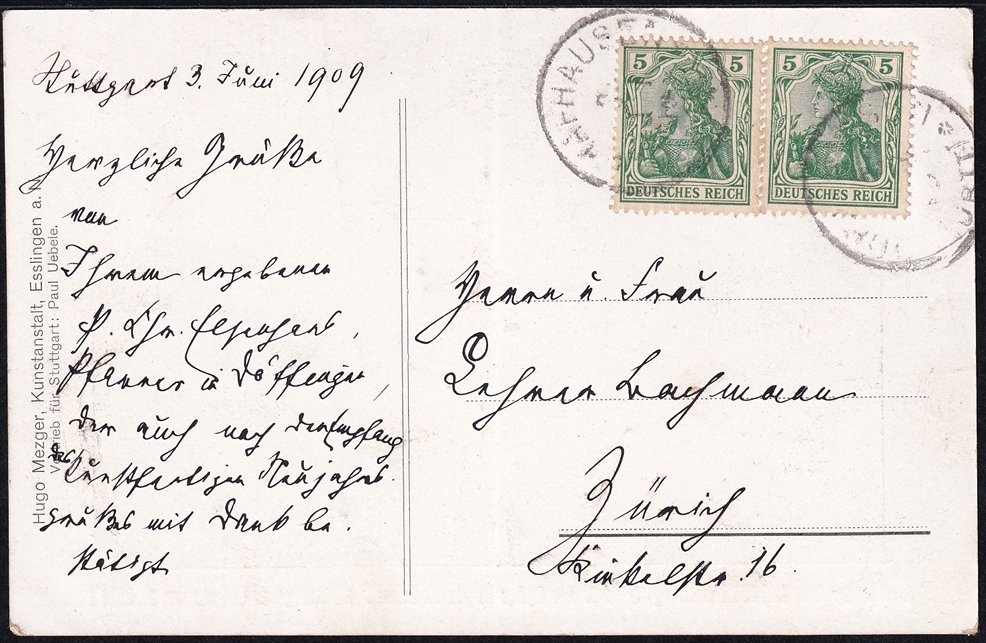 Stuttgart 3. Juni 1909
Herzliche Grüße
von
Ihrem ergebenen
P. Chr. Elsenhans,
Pfarrer in Döffingen,
der auch noch den Empfang
des kunstfertigen Neujahrs-
grußes mit Dank be-
stätigt.
Hugo Mezger, Kunstanstalt, Esslingen a. N.
Vertrieb für Stuttgart: Paul Uebele.
5 5
DEUTSCHES REICH
5 5
DEUTSCHES REICH
Herrn u. Frau
Lehrer Bachmann
Zürich
Kinkelstr. 16.